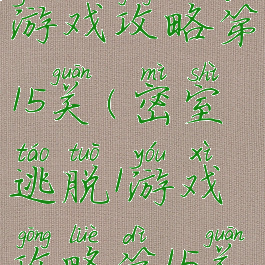 游戏攻略第
guān mì shì
15关(密室
táo tuō yóu xì
逃脱1游戏
gōng lüè dì guān
攻略第15关